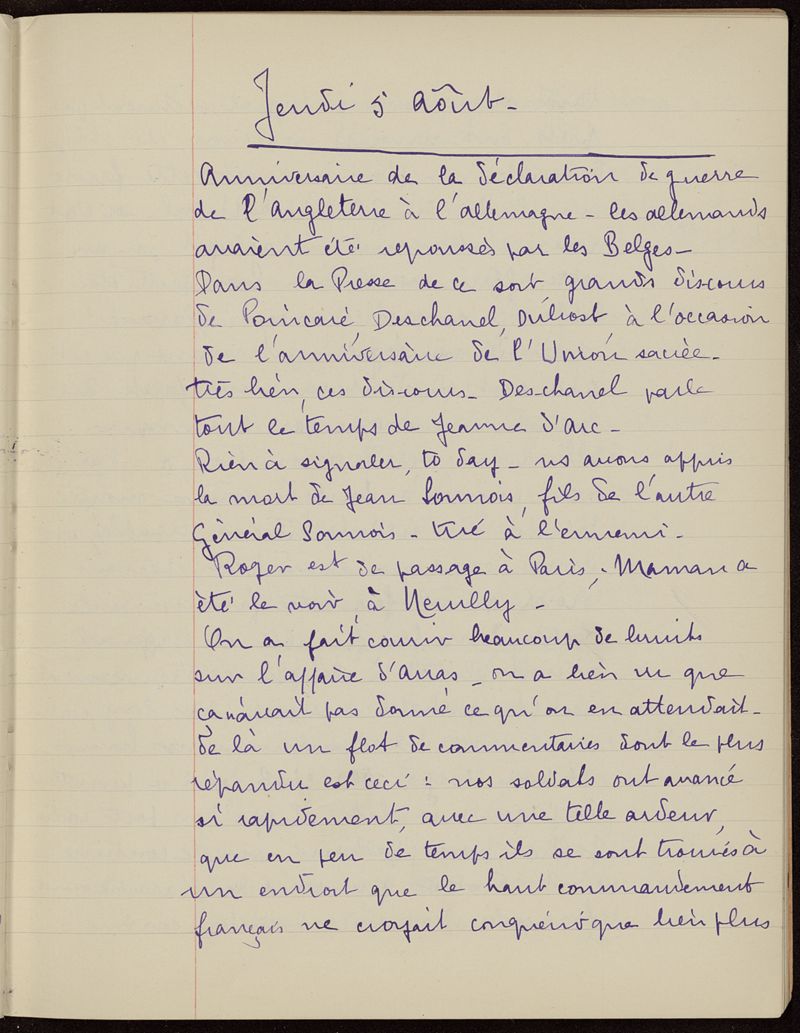 Jeudi 5 Août -
Anniversaire de la déclaration de guerre
de l'Angleterre à l'allemagne - les allemands
avaient été repoussés par les Belges -
Dans la Presse de ce soir grands discours
de Poincaré, Deschanel, Dubost à l'occasion
de l'anniversaire de l'Union sacrée -
très bien, ces discours - Deschanel parle
tout le temps de Jeanne d'Arc -
Rien à signaler, to day - ns avons appris
la mort de Jean Sonnois, fils de l'autre
Général Sonnois - tué à l'ennemi -
Roger est de passage à Paris, Maman a
été le voir, à Neuilly -
On a fait courir beaucoup de bruits
sur l'affaire d'Arras - on a bien vu que
ça n'avait pas donné ce qu'on en attendait -
de là un flot de commentaires dont le plus
répandu est ceci : nos soldats ont avancé
si rapidement, avec une telle ardeur,
que en peu de temps ils se sont trouvés à
un endroit que le haut commandement
français ne croyait conquérir que bien plus